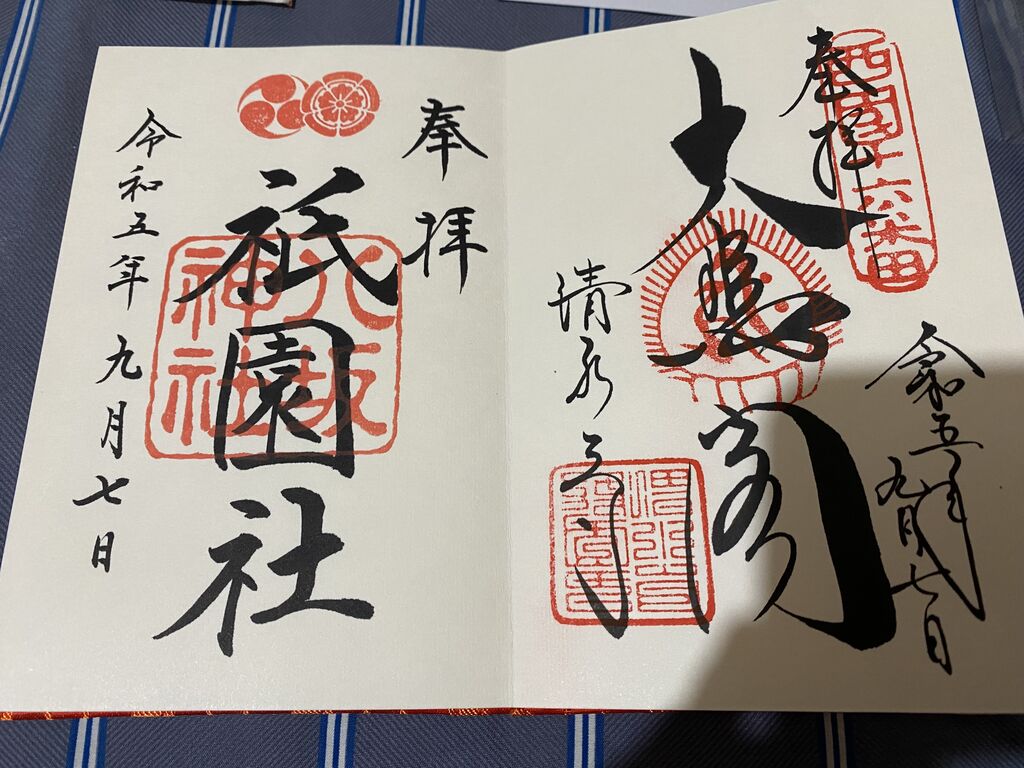 西国十六番
奉拝
令和五年九月七日
大悲閣
清水寺
奉拝
八坂神社
祇園社
令和五年九月七日